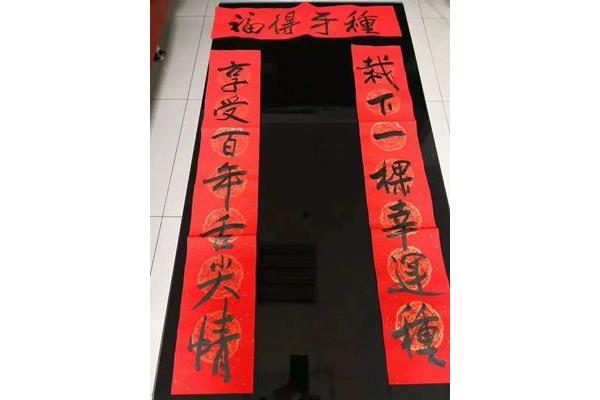 種手得福
栽下一棵幸運種
享受百年舌尖情